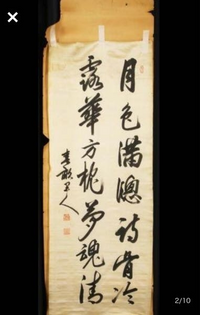 月色満窓詩骨冷
露華方枕夢魂清
2/10